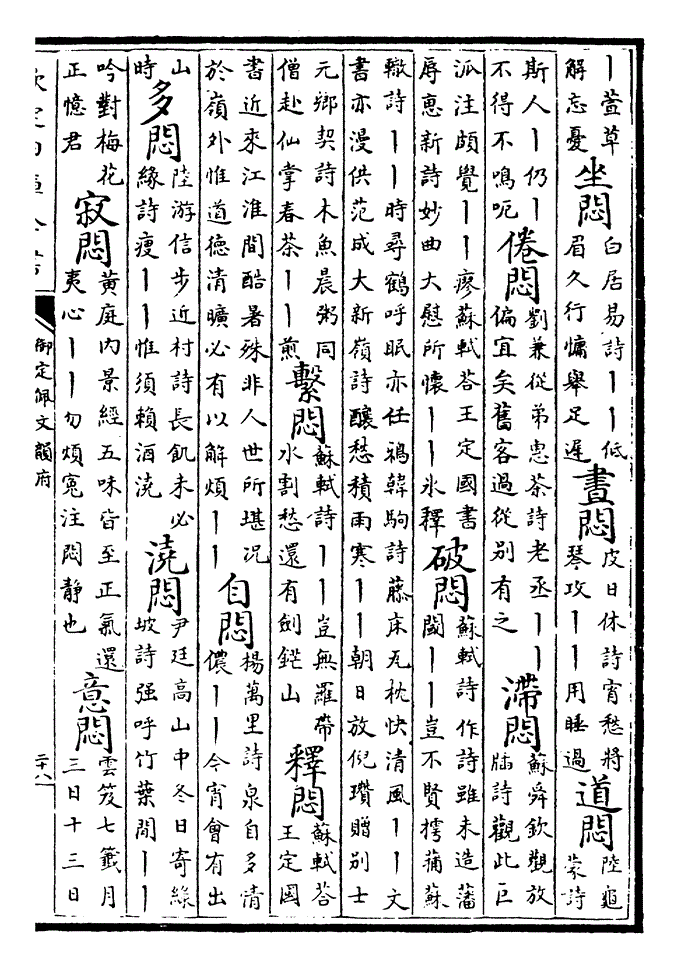 丨萱草
解忘憂
坐悶
白居易詩丨丨低
眉久行慵舉足遲
晝悶
皮日休詩宵愁將
琴攻丨丨用睡過
道悶
陸龜
蒙詩
斯人丨仍丨
不得不鳴呃
倦悶
劉兼從弟惠茶詩老丞丨丨
偏宜矣舊客過從別有之
滯悶
蘇舜欽觀放
牐詩觀此巨
派注頗覺丨丨瘳蘇軾荅王定國書
辱惠新詩妙曲大慰所懷丨丨氷釋
破悶
蘇軾詩作詩雖未造藩
閾丨丨豈不賢摴蒱蘇
轍詩丨丨時尋鶴呼眠亦任鴉韓駒詩藤床瓦枕快清風丨丨文
書亦漫供范成大新嶺詩釀愁積雨寒丨丨朝日放倪瓚贈別士
元鄉契詩木魚晨粥同
僧赴仙掌春茶丨丨煎
繫悶
蘇軾詩丨丨豈無羅帶
水割愁還有劍鋩山
釋悶
蘇軾荅
王定國
書近來江淮間酷暑殊非人世所堪况
於嶺外惟道德清曠必有以解煩丨丨
自悶
楊萬里詩泉自多情
儂丨丨今宵會有出
山
時
多悶
陸游信步近村詩長飢未必
緣詩瘦丨丨惟須賴酒澆
澆悶
尹廷高山中冬日寄緣
坡詩强呼竹葉間丨丨
吟對梅花
正憶君
寂悶
黃庭内景經五味皆至正氣還
夷心丨丨勿煩寃注悶靜也
意悶
雲笈七籤月
三日十三日
欽定四庫全書
御定佩文韻府
二十八